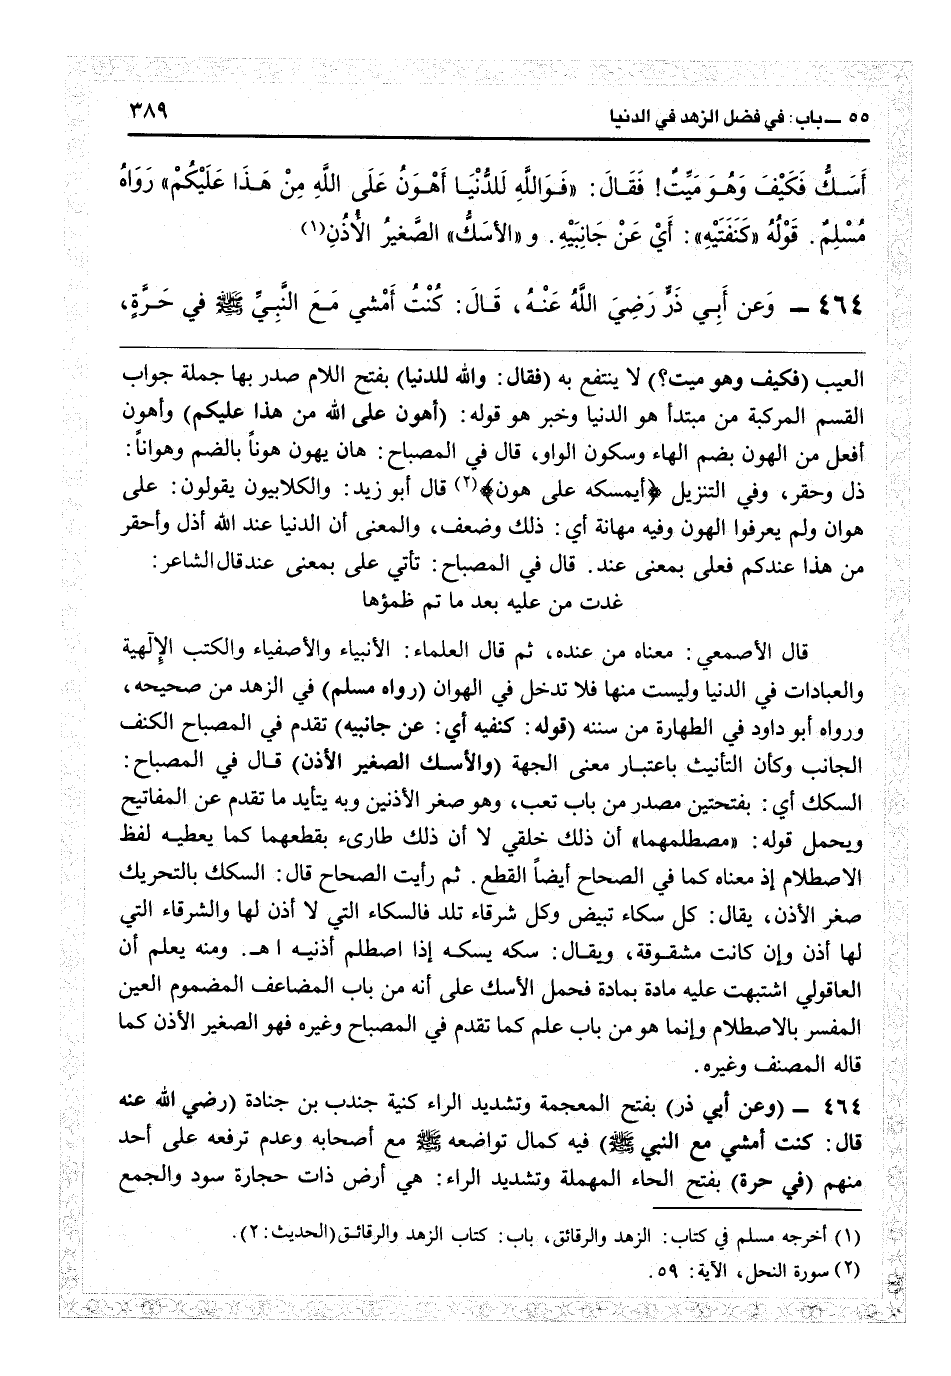 ٥٥ ـ باب: في فضل الزهد في الدنيا
٣٨٩
أَسَكُّ فَكَيْفَ وَهُوَ مَيِّتٌ! فَقَالَ: «فَوَاللَّهِ لَلدُّنْيَا أَهْوَنُ عَلَى اللَّهِ مِنْ هَذَا عَلَيْكُمْ» رَوَاهُ
مُسْلِمٌ. قَوْلُهُ «كَنَفَتَيْهِ»: أَيْ عَنْ جَانِبَيْهِ. و «الأسَكُّ» الصَّغيرُ الأُذُنِ(١)
٤٦٤ ـ وَعن أَبِي ذَرٍّ رَضِيَ اللَّهُ عَنْهُ، قَالَ: كُنْتُ أَمْشي مَعَ النَّبِيِّ ﷺ في حَرَّةٍ،
العيب (فكيف وهو ميت؟) لا ينتفع به (فقال: والله للدنيا) بفتح اللام صدر بها جملة جواب
القسم المركبة من مبتدأ هو الدنيا وخبر هو قوله: (أهون على الله من هذا عليكم) وأهون
أفعل من الهون بضم الهاء وسكون الواو، قال في المصباح: هان يهون هوناً بالضم وهواناً:
ذل وحقر، وفي التنزيل ﴿أيمسكه على هون﴾(٢) قال أبو زيد: والكلابيون يقولون: على
هوان ولم يعرفوا الهون وفيه مهانة أي: ذلك وضعف، والمعنى أن الدنيا عند الله أذل وأحقر
من هذا عندكم فعلى بمعنى عند. قال في المصباح: تأتي على بمعنى عند قال الشاعر:
غدت من عليه بعد ما تم ظمؤها
قال الأصمعي: معناه من عنده، ثم قال العلماء: الأنبياء والأصفياء والكتب الإلٓهية
والعبادات في الدنيا وليست منها فلا تدخل في الهوان (رواه مسلم) في الزهد من صحيحه،
ورواه أبو داود في الطهارة من سننه (قوله: كنفيه أي: عن جانبيه) تقدم في المصباح الكنف
الجانب وكأن التأنيث باعتبار معنى الجهة (والأسك الصغير الأذن) قال في المصباح:
السكك أي: بفتحتين مصدر من باب تعب، وهو صغر الأذنين وبه يتأيد ما تقدم عن المفاتيح
ويحمل قوله: «مصطلمهما» أن ذلك خلقي لا أن ذلك طارىء بقطعهما كما يعطيه لفظ
الاصطلام إذ معناه كما في الصحاح أيضاً القطع. ثم رأيت الصحاح قال: السكك بالتحريك
صغر الأذن، يقال: كل سكاء تبيض وكل شرقاء تلد فالسكاء التي لا أذن لها والشرقاء التي
لها أذن وإن كانت مشقوقة، ويقال: سكه يسكه إذا اصطلم أذنيه ا هـ. ومنه يعلم أن
العاقولي اشتبهت عليه مادة بمادة فحمل الأسك على أنه من باب المضاعف المضموم العين
المفسر بالاصطلام وإنما هو من باب علم كما تقدم في المصباح وغيره فهو الصغير الأذن كما
قاله المصنف وغيره.
٤٦٤ ـ (وعن أبي ذر) بفتح المعجمة وتشديد الراء كنية جندب بن جنادة (رضي الله عنه
قال: كنت أمشي مع النبي ﷺ) فيه كمال تواضعه ﷺ مع أصحابه وعدم ترفعه على أحد
منهم (في حرة) بفتح الحاء المهملة وتشديد الراء: هي أرض ذات حجارة سود والجمع
(١) أخرجه مسلم في كتاب: الزهد والرقائق، باب: كتاب الزهد والرقائق (الحديث: ٢).
(٢) سورة النحل، الآية: ٥٩.